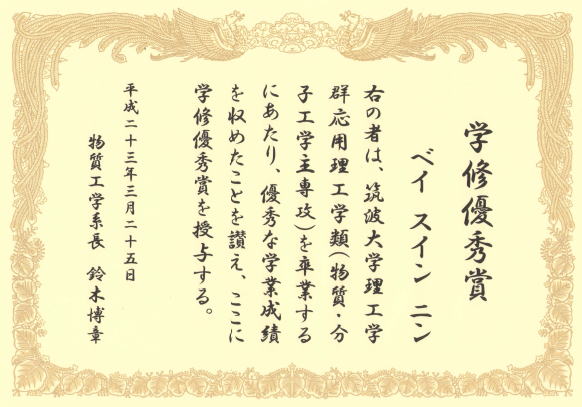 学修優秀賞
ベイ スイン ニン
右の者は、筑波大学理工学
群応用理工学類(物質・分
子工学主専攻)を卒業する
にあたり、優秀な学業成績
を収めたことを讃え、ここに
学修優秀賞を授与する。
平成二十三年三月二十五日
物質工学系長 鈴木博章